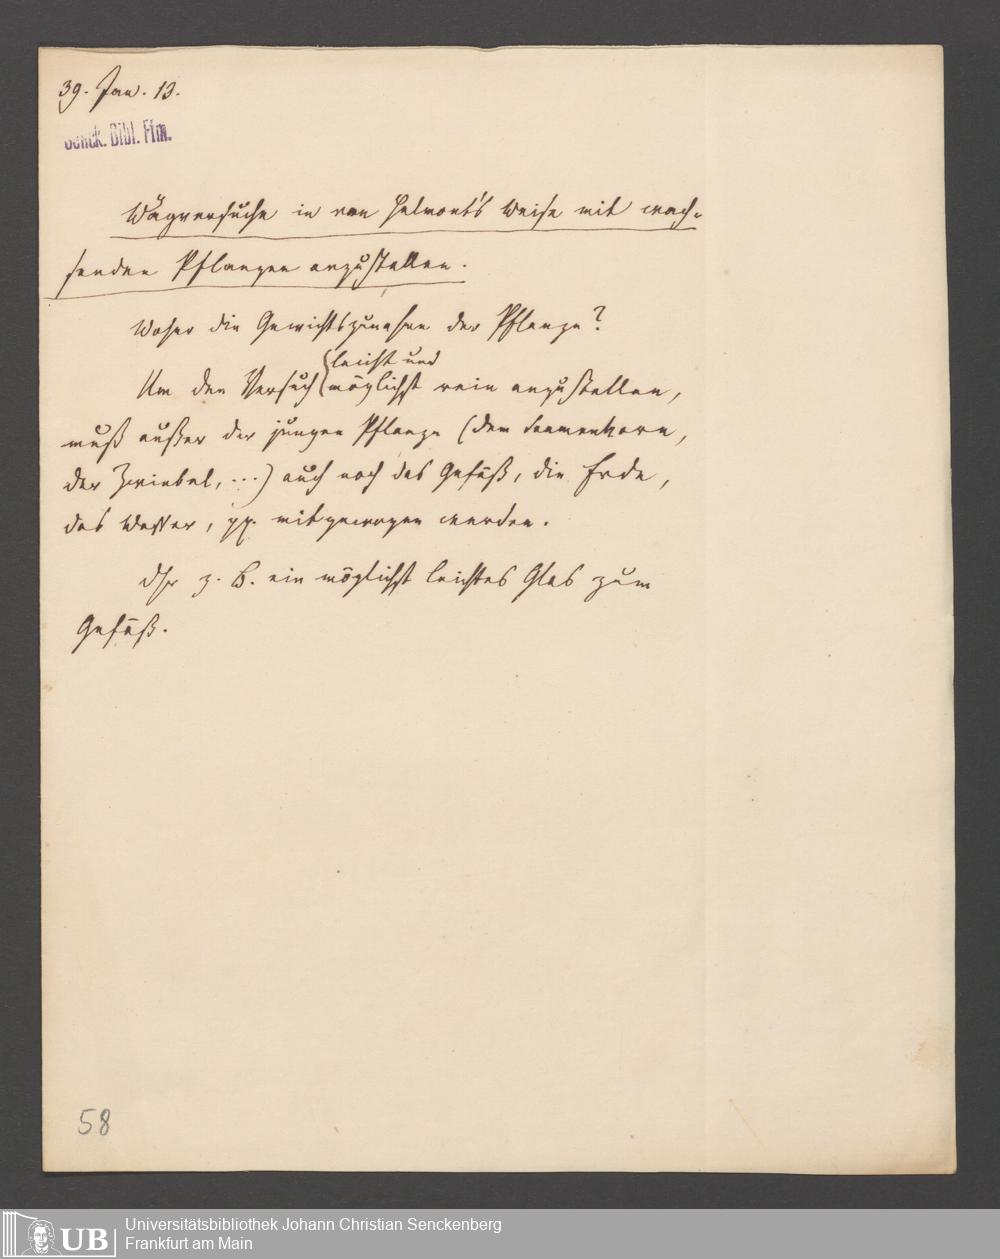 39. Jan. 13.
Senck. Bibl. Ffm.
Wägversuche in van Helmont's Weise mit wach-
senden Pflanzen anzustellen.
Woher die Gewichtszunahme der Pflanze?
leicht und
Um den Versuch möglichst rein anzustellen,
muß außer der jungen Pflanze (dem Samenkorn,
der Zwiebel, ...) auch noch das Gefäß, die Erde,
das Wasser, pp. mitgewogen werden.
z. B. ein möglichst leichtes Glas zum
Gefäß.
58
UB
Universitätsbibliothek Johann Christian Senckenberg
Frankfurt am Main